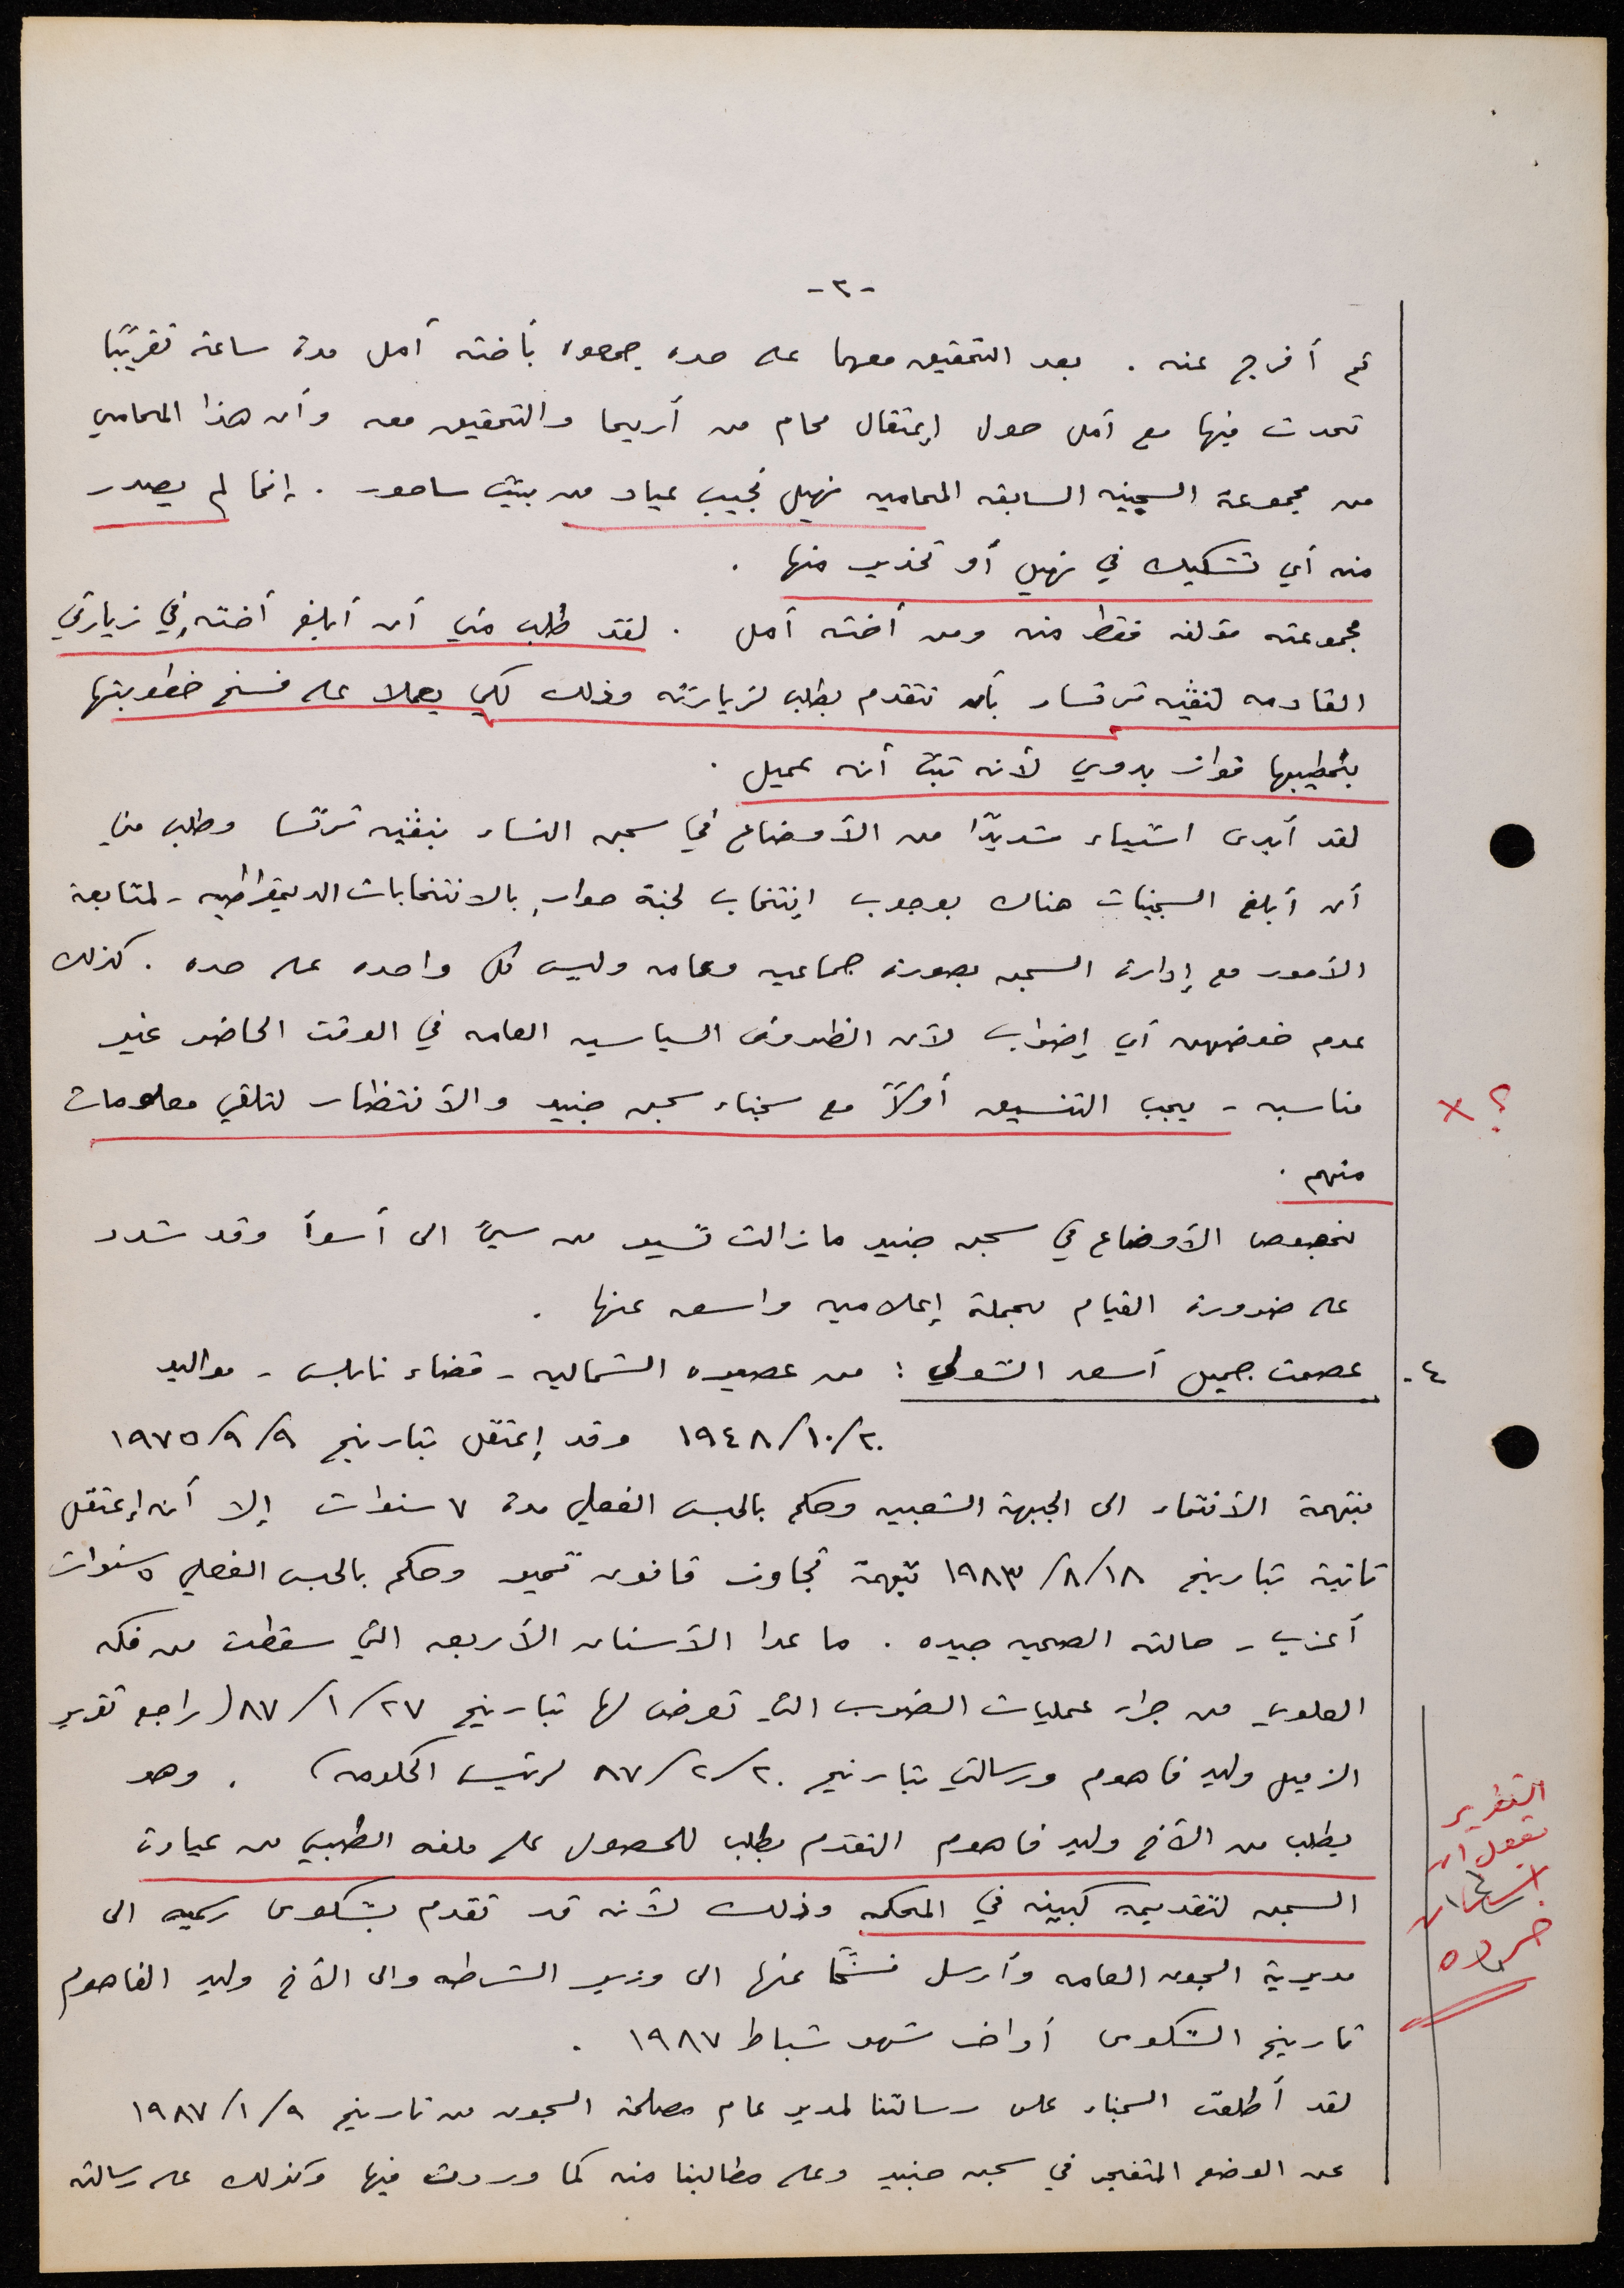 -٢-
ثم أفرج عنه . بعد التحقيق معهما على حده جمعوه بأخته أمل مدة ساعة تقريبًا
تحدث فيها مع أمل حول إعتقال محام من أريحا والتحقيق معه وأن هذا المحامي
من مجموعة السجينه السابقه المحاميه نهيل نجيب عياد من بيت ساحور . إنما لم يصدر
منه أي تشكيك في نهيل أو تحذير منها .
مجموعته مؤلفه فقط منه ومن أخته أمل . لقد طلب مني أن أبلغ أخته في زيارتي
القادمه لنفيه ترتسا بأن تتقدم بطلب لزيارته وذلك لكي يعملا على فسخ خطوبتها
بخطيبها فواز بدوي لأنه تبيّن أنه عميل .
لقد أبدى استياء شديدًا من الأوضاع في سجن النساء بنفيه ترتسا وطلب مني
أن أبلغ السجينات هناك بوجوب إنتخاب لجنة حوار بالانتخابات الديمقراطيه - لمتابعة
الأمور مع إدارة السجن بصورة جماعيه وعامه وليس كل واحده على حده . كذلك
عدم خوضهن أي إضراب لأن الظروف السياسيه العامه في الوقت الحاضر غير
مناسبه - يجب التنسيق أولاً مع سجناء سجن جنيد والأنتظار لتلقي معلومات
؟ ×
منهم .
بخصوص الأوضاع في سجن جنيد ما زالت تسير من سيئ الى أسوأ وقد شدد
على ضرورة القيام بحملة إعلاميه واسعه عنها .
٤- عصمت جميل أسعد الشولي : من عصيره الشماليه - قضاء نابلس - مواليد
٢٠/١٠/١٩٤٨ وقد إعتقل بتاريخ ٩/٩/١٩٧٥
بتهمة الأنتماء الى الجبهة الشعبيه وحكم بالحبس الفعلي مدة ٧ سنوات إلا أنه إعتقل
ثانية بتاريخ ١٨/٨/١٩٨٣ بتهمة تجاوز قانون تمير وحكم بالحبس الفعلي ٥ سنوات
أعزب - حالته الصحيه جيده . ما عدا الأسنان الأربعه التي سقطت من فكه
العلوي من جراء عمليات الضرب التي تعرض لها بتاريخ ٢٧/١/٨٧ (راجع تقرير
الزميل وليد فاهوم ورسالتي بتاريخ ٢٠/٢/٨٧ لرئيس الحكومه) . وهو
يطلب من الأخ وليد فاهوم التقدم بطلب للحصول على ملفه الطبي من عيادة
التقرير
يقول ان
٤ اسنان
السجن لتقديمه كبينه في المحكمه وذلك لأنه قد تقدم بشكوى رسميه الى
مديرية السجون العامه وأرسل نسخًا عنها الى وزير الشرطه والى الأخ وليد الفاهوم
تاريخ الشكوى أواخر شهر شباط ١٩٨٧ .
لقد أطلعت السجناء على رسالتنا لمدير عام مصلحة السجون من تاريخ ٩/١/١٩٨٧
عن الوضع المتفجر في سجن جنيد وعلى مطالبنا منه كما وردت فيها وكذلك على رسالته